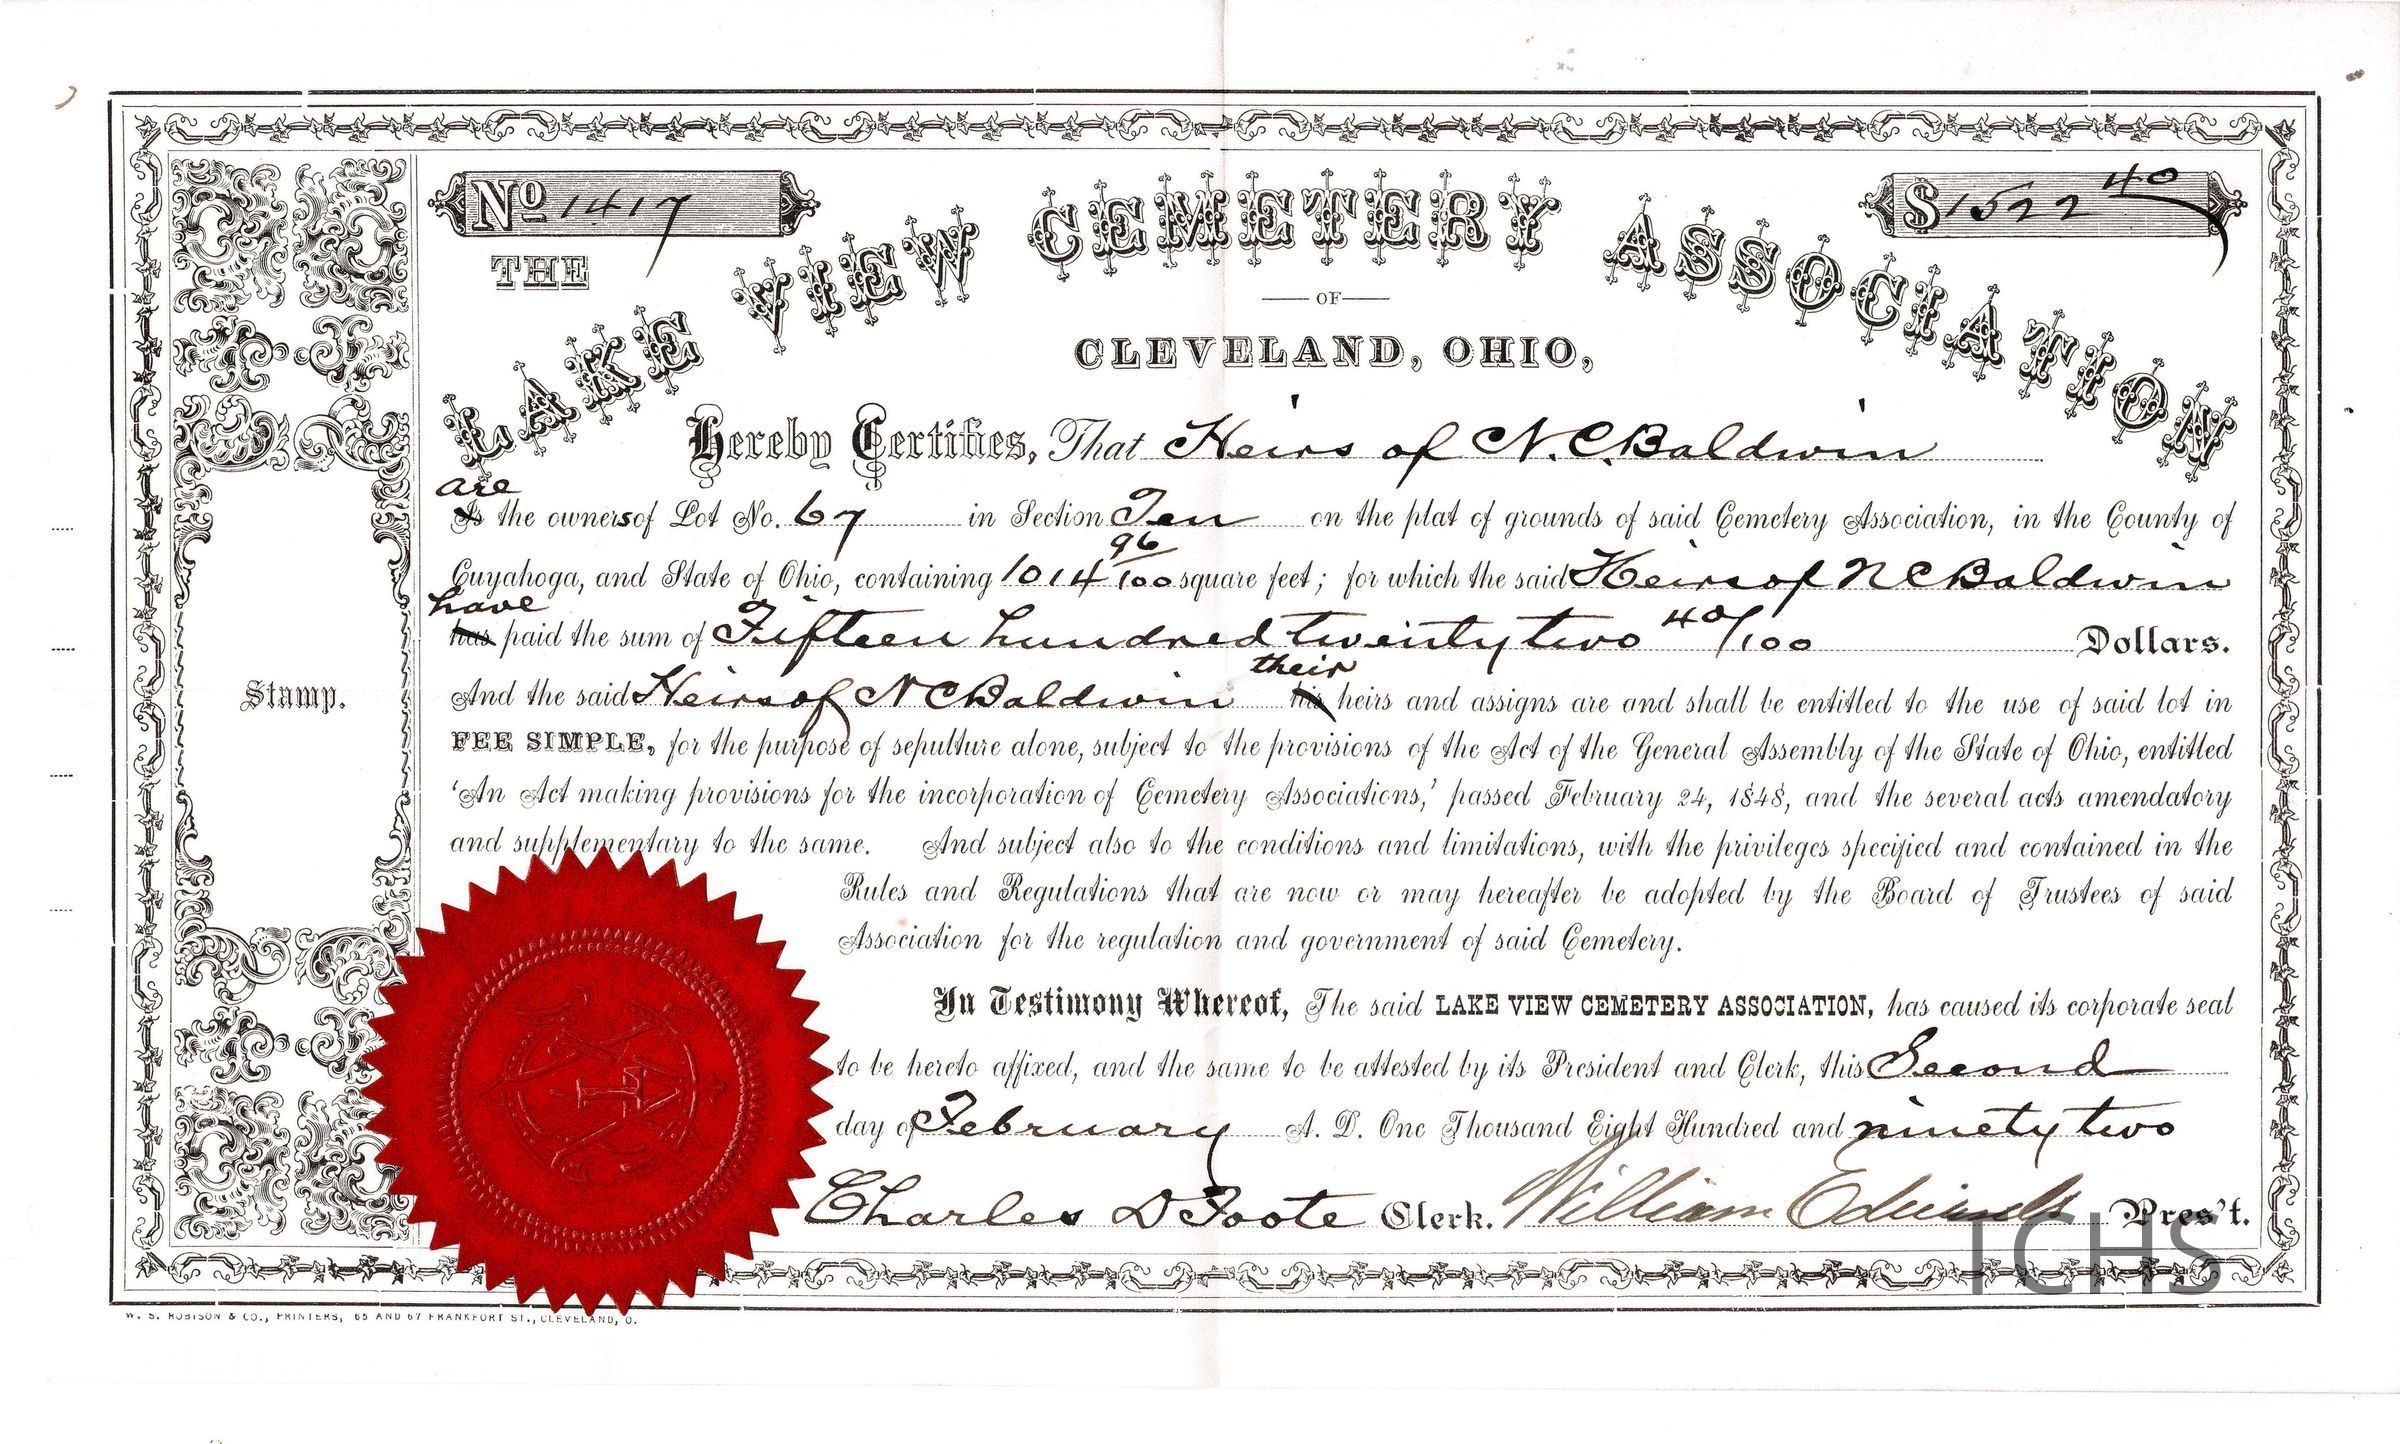 No 1417
$1522 40
THE
LAKE VIEW CEMETERY ASSOCIATION
OF
CLEVELAND, OHIO,
Hereby Certifies, That Heirs of N. C. Baldwin
are
Is the owners of Lot No. 67 in Section Ten on the plat of grounds of said Cemetery Association, in the County of
Cuyahoga, and State of Ohio, containing 1014 96/100 square feet; for which the said Heirs of N C Baldwin
have
has paid the sum of Fifteen hundred twenty two 40/100 Dollars.
their
And the said Heirs of N C Baldwin his heirs and assigns are and shall be entitled to the use of said lot in
FEE SIMPLE, for the purpose of sepulture alone, subject to the provisions of the Act of the General Assembly of the State of Ohio, entitled
'An Act making provisions for the incorporation of Cemetery Associations,' passed February 24, 1848, and the several acts amendatory
and supplementary to the same. And subject also to the conditions and limitations, with the privileges specified and contained in the
Rules and Regulations that are now or may hereafter be adopted by the Board of Trustees of said
Association for the regulation and government of said Cemetery.
In Testimony Whereof, The said LAKE VIEW CEMETERY ASSOCIATION, has caused its corporate seal
to be hereto affixed, and the same to be attested by its President and Clerk, this Second
day of February A. D. One Thousand Eight Hundred and ninety two
Charles D Foote Clerk. William Edwards Pres't.
Stamp.
TCHS
W. S. ROBISON & CO., PRINTERS, 65 AND 67 FRANKFORT ST., CLEVELAND, O.